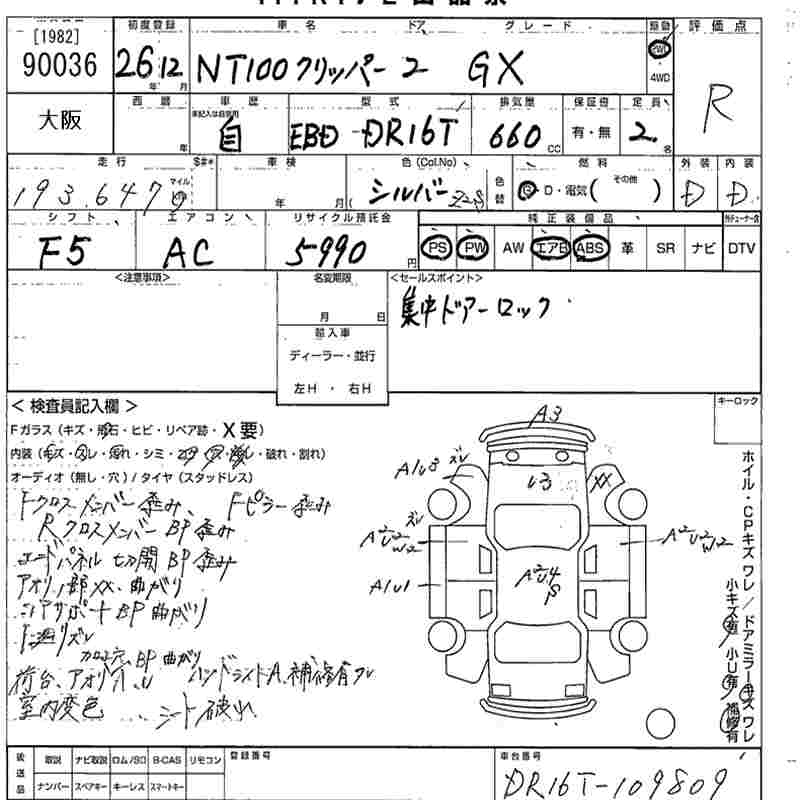 [1982]
90036
大阪
初度登録 車名 ドア グレード 駆動 評価点
26 12 NT100クリッパー 2 GX 2WD 4WD R
年 月
西暦 車歴 型式 排気量 保証書 定員
未記入は自家用
年 自 EBD-DR16T 660 CC 有・無 2 名
走行 $#* 車検 色 (Col.No) 燃料 外装 内装
193,647 マイル km 年 月 シルバー Z2S 色替 G・D・電気( その他 ) D D
シフト エアコン リサイクル預託金 純正装備品 外チューナー含
F5 AC 5990 円 PS PW AW エアB ABS 革 SR ナビ DTV
<注意事項> 名変期限 <セールスポイント>
月 日 集中ドアーロック
輸入車
ディーラー・並行
左H ・ 右H
<検査員記入欄> キーロック
Fガラス (キズ・飛石・ヒビ・リペア跡・X要)
内装 (キズ・スレ・汚れ・シミ・コゲ・穴・剥れ・破れ・割れ)
オーディオ (無し・穴) / タイヤ (スタッドレス)
Fクロスメンバー歪み、Fピラー歪み
RクロスメンバーBP歪み
エンドパネル切開BP歪み
アオリ部XX、曲がり
BP曲がり
ズレ
加工穴、BP曲がり
荷台、アオリ ハンドライトA、補修有ワレ
室内変色 シート破れ
A3
ズレ
A1U3
U3
XX
ズレ
A2U2
W2
A2U2
W2
A1U1
A2U4
S
ホイル・CPキズ ワレ / ドアミラーキズ ワレ
小キズ有 小U有 補修有
後送品 取説 ナビ取説 ロム/SD B-CAS リモコン 登録番号 車台番号
ナンバー スペアキー キーレス スマートキー DR16T-109809